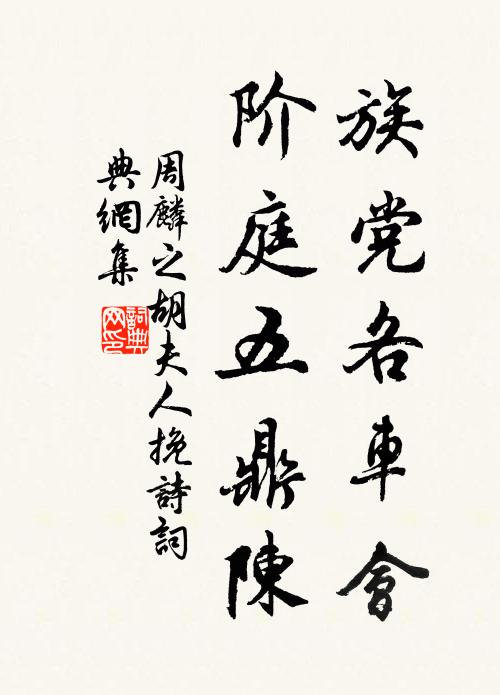 族党各車會
阶庭五鼎陳
周麟之胡夫人挽詩詞
典網集
詞典网印